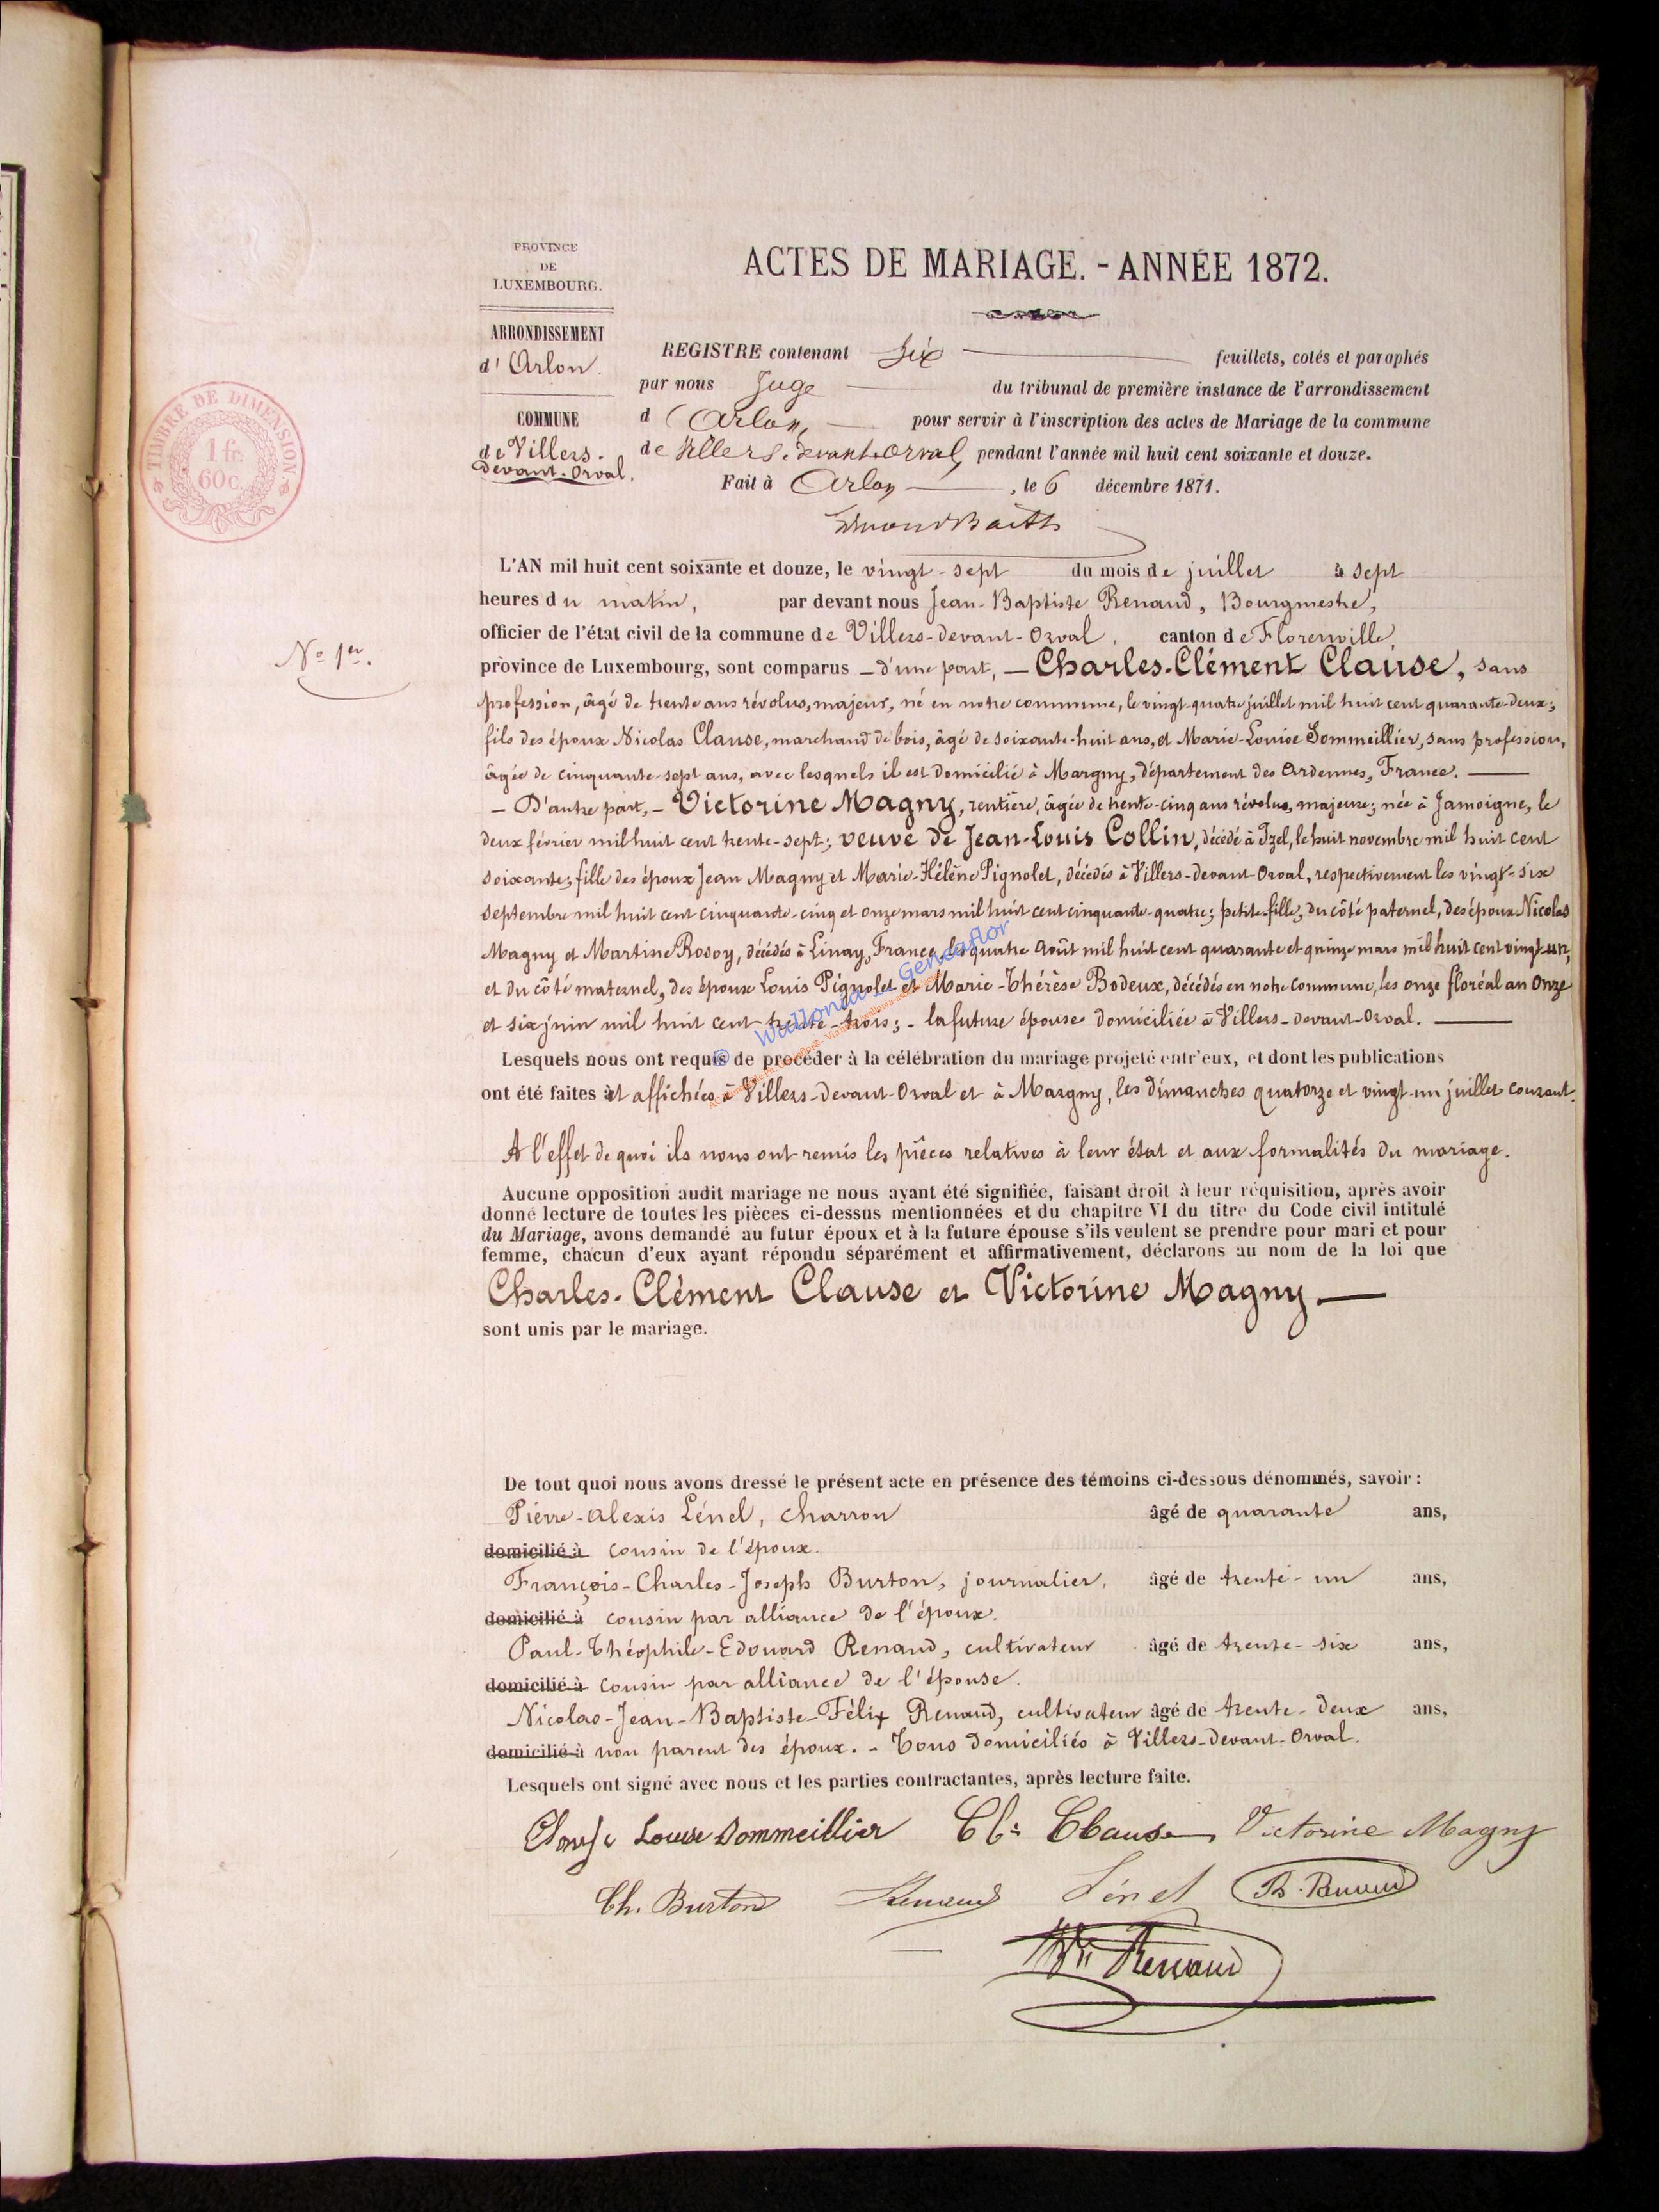 PROVINCE
DE
LUXEMBOURG.
ARRONDISSEMENT
d'Arlon.
COMMUNE
de Villers-
devant-Orval.
TIMBRE DE DIMENSION
1 fr.
60 c.
ACTES DE MARIAGE. - ANNÉE 1872.
REGISTRE contenant six feuillets, cotés et paraphés
par nous Juge du tribunal de première instance de l'arrondissement
d'Arlon, pour servir à l'inscription des actes de Mariage de la commune
de Villers-devant-Orval, pendant l'année mil huit cent soixante et douze.
Fait à Arlon, le 6 décembre 1871.
No 1er.
L'AN mil huit cent soixante et douze, le vingt-sept du mois de juillet à sept
heures du matin, par devant nous Jean-Baptiste Renaud, Bourgmestre,
officier de l'état civil de la commune de Villers-devant-Orval, canton de Florenville,
province de Luxembourg, sont comparus - d'une part, - Charles-Clément Clause, sans
profession, âgé de trente ans révolus, majeur, né en notre commune, le vingt-quatre juillet mil huit cent quarante-deux;
fils des époux Nicolas Clause, marchand de bois, âgé de soixante-huit ans, et Marie-Louise Sommeillier, sans profession,
âgée de cinquante-sept ans, avec lesquels il est domicilié à Margny, département des Ardennes, France. —
- D'autre part, - Victorine Magny, rentière, âgée de trente-cinq ans révolus, majeure; née à Jamoigne, le
deux février mil huit cent trente-sept; veuve de Jean-Louis Collin, décédé à Izel, le huit novembre mil huit cent
soixante; fille des époux Jean Magny et Marie-Hélène Pignolet, décédés à Villers-devant-Orval, respectivement les vingt-six
septembre mil huit cent cinquante-cinq et onze mars mil huit cent cinquante-quatre; petite-fille, du côté paternel, des époux Nicolas
Magny et Martine Rosoy, décédés à Linay, France, les quatre août mil huit cent quarante et quinze mars mil huit cent vingt-un,
et du côté maternel, des époux Louis Pignolet et Marie-Thérèse Bodeux, décédés en notre commune, les onze floréal an onze
et six juin mil huit cent trente-trois; - la future épouse domiciliée à Villers-devant-Orval. —
© Wallonia - Geneaflor
Lesquels nous ont requis de procéder à la célébration du mariage projeté entr'eux, et dont les publications
ont été faites et affichées à Villers-devant-Orval et à Margny, les dimanches quatorze et vingt-un juillet courant.
A l'effet de quoi ils nous ont remis les pièces relatives à leur état et aux formalités du mariage.
Aucune opposition audit mariage ne nous ayant été signifiée, faisant droit à leur réquisition, après avoir
donné lecture de toutes les pièces ci-dessus mentionnées et du chapitre VI du titre du Code civil intitulé
du Mariage, avons demandé au futur époux et à la future épouse s'ils veulent se prendre pour mari et pour
femme, chacun d'eux ayant répondu séparément et affirmativement, déclarons au nom de la loi que
Charles-Clément Clause et Victorine Magny —
sont unis par le mariage.
De tout quoi nous avons dressé le présent acte en présence des témoins ci-dessous dénommés, savoir :
Pierre-Alexis Lénel, charron âgé de quarante ans,
domicilié à cousin de l'époux.
François-Charles-Joseph Burton, journalier, âgé de trente-un ans,
domicilié à cousin par alliance de l'époux.
Paul-Théophile-Edouard Renaud, cultivateur âgé de trente-six ans,
domicilié à cousin par alliance de l'épouse.
Nicolas-Jean-Baptiste-Félix Renaud, cultivateur âgé de trente-deux ans,
domicilié à non parent des époux. - Tous domiciliés à Villers-devant-Orval.
Lesquels ont signé avec nous et les parties contractantes, après lecture faite.
Clause Louise Sommeillier Ch. Clause Victorine Magny
Ch. Burton Renaud Lénel Th. Renaud
Renaud